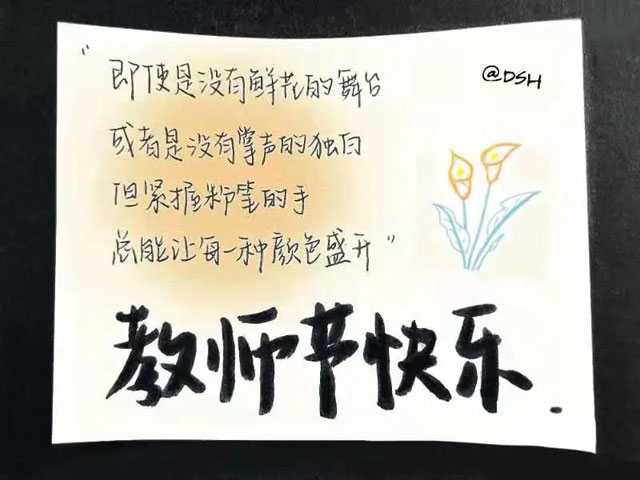 “即使是没有鲜花的舞台
@DSH
或者是没有掌声的独白
但紧握粉笔的手
总能让每一种颜色盛开”
教师节快乐.